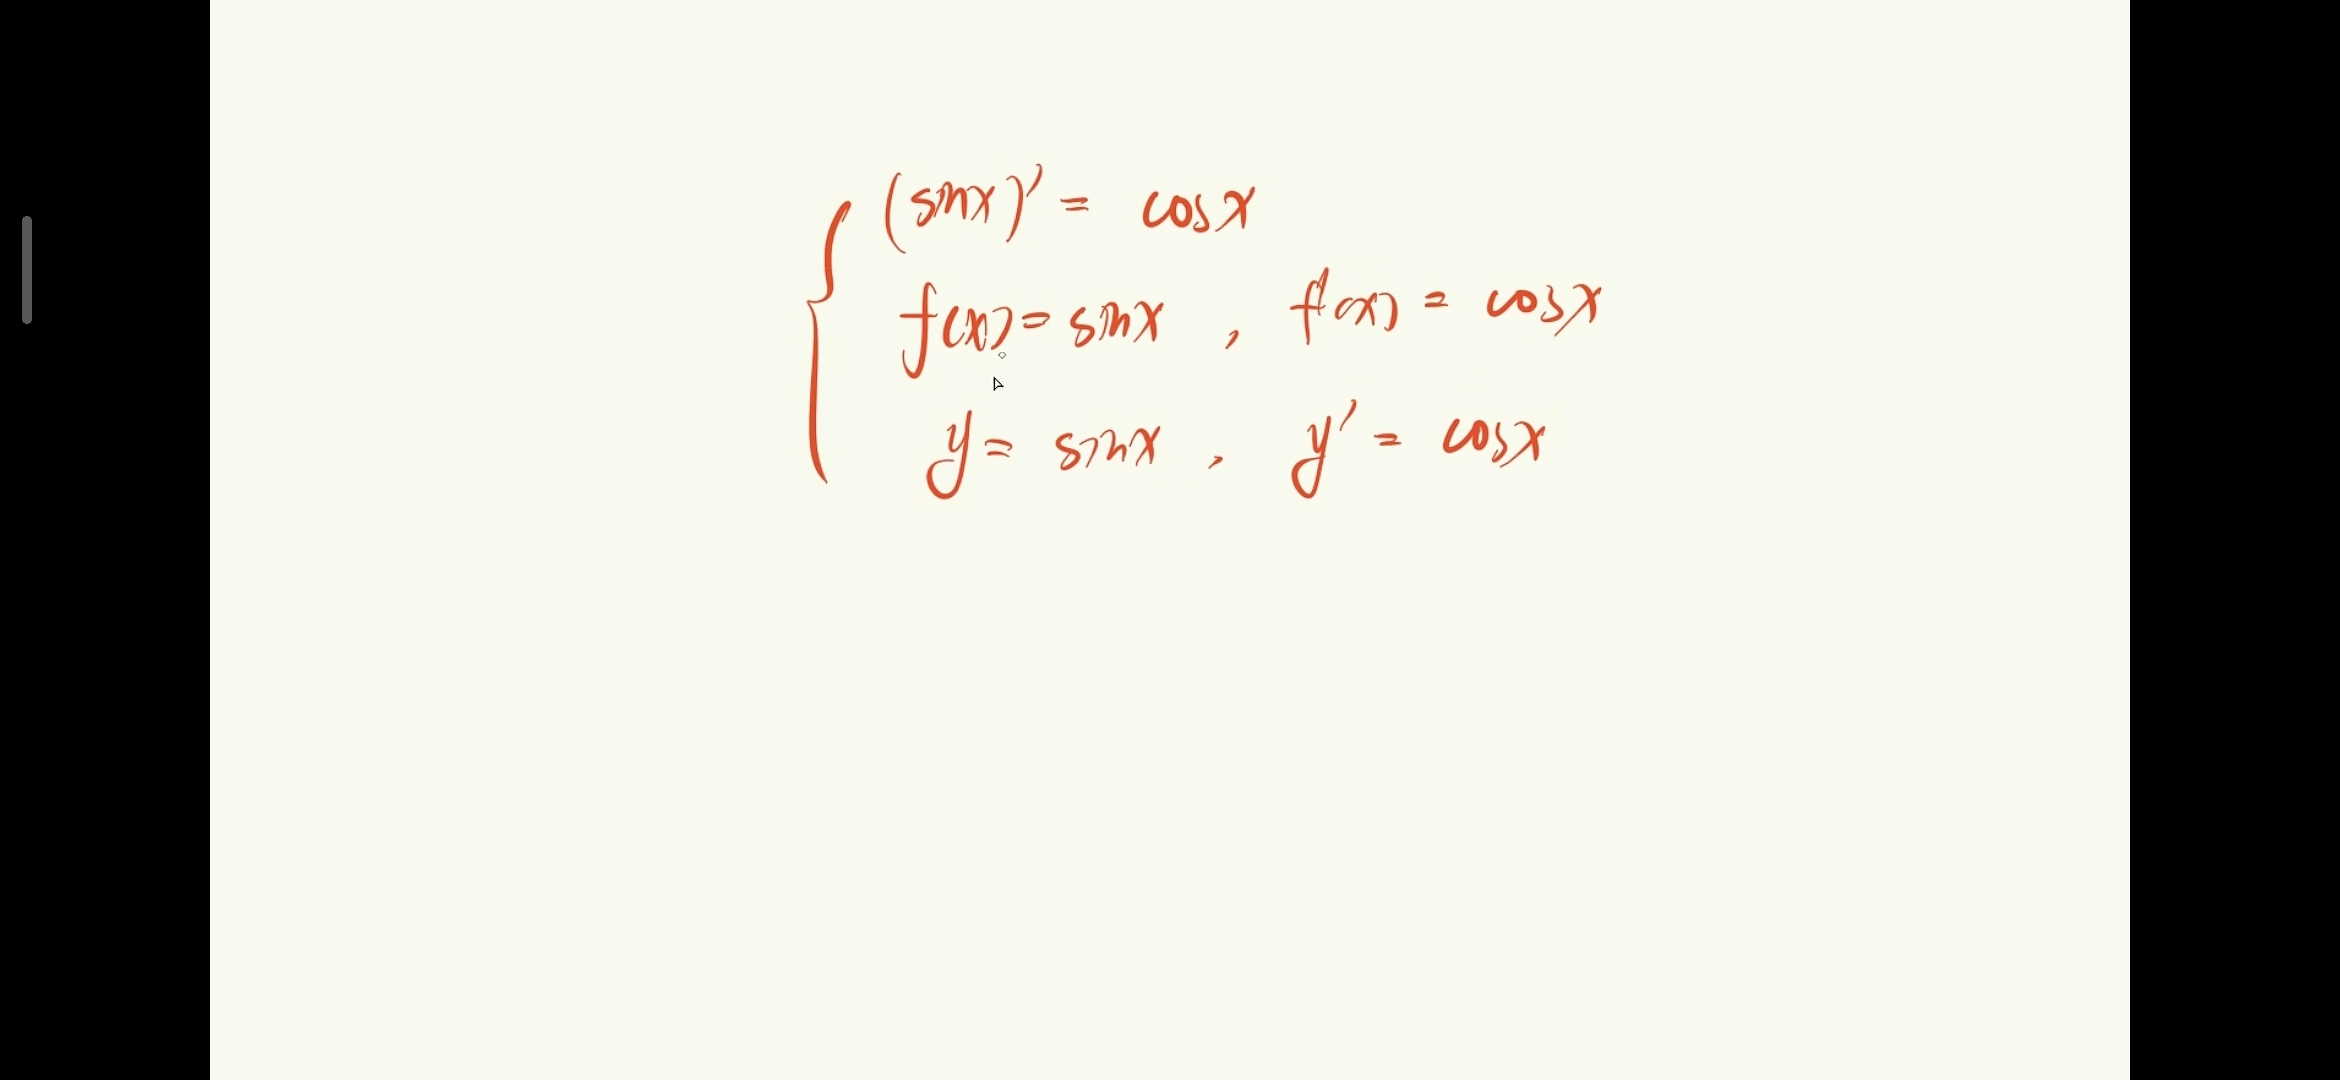 (sinx)' = cosx
f(x) = sinx , f'(x) = cosx
y = sinx , y' = cosx